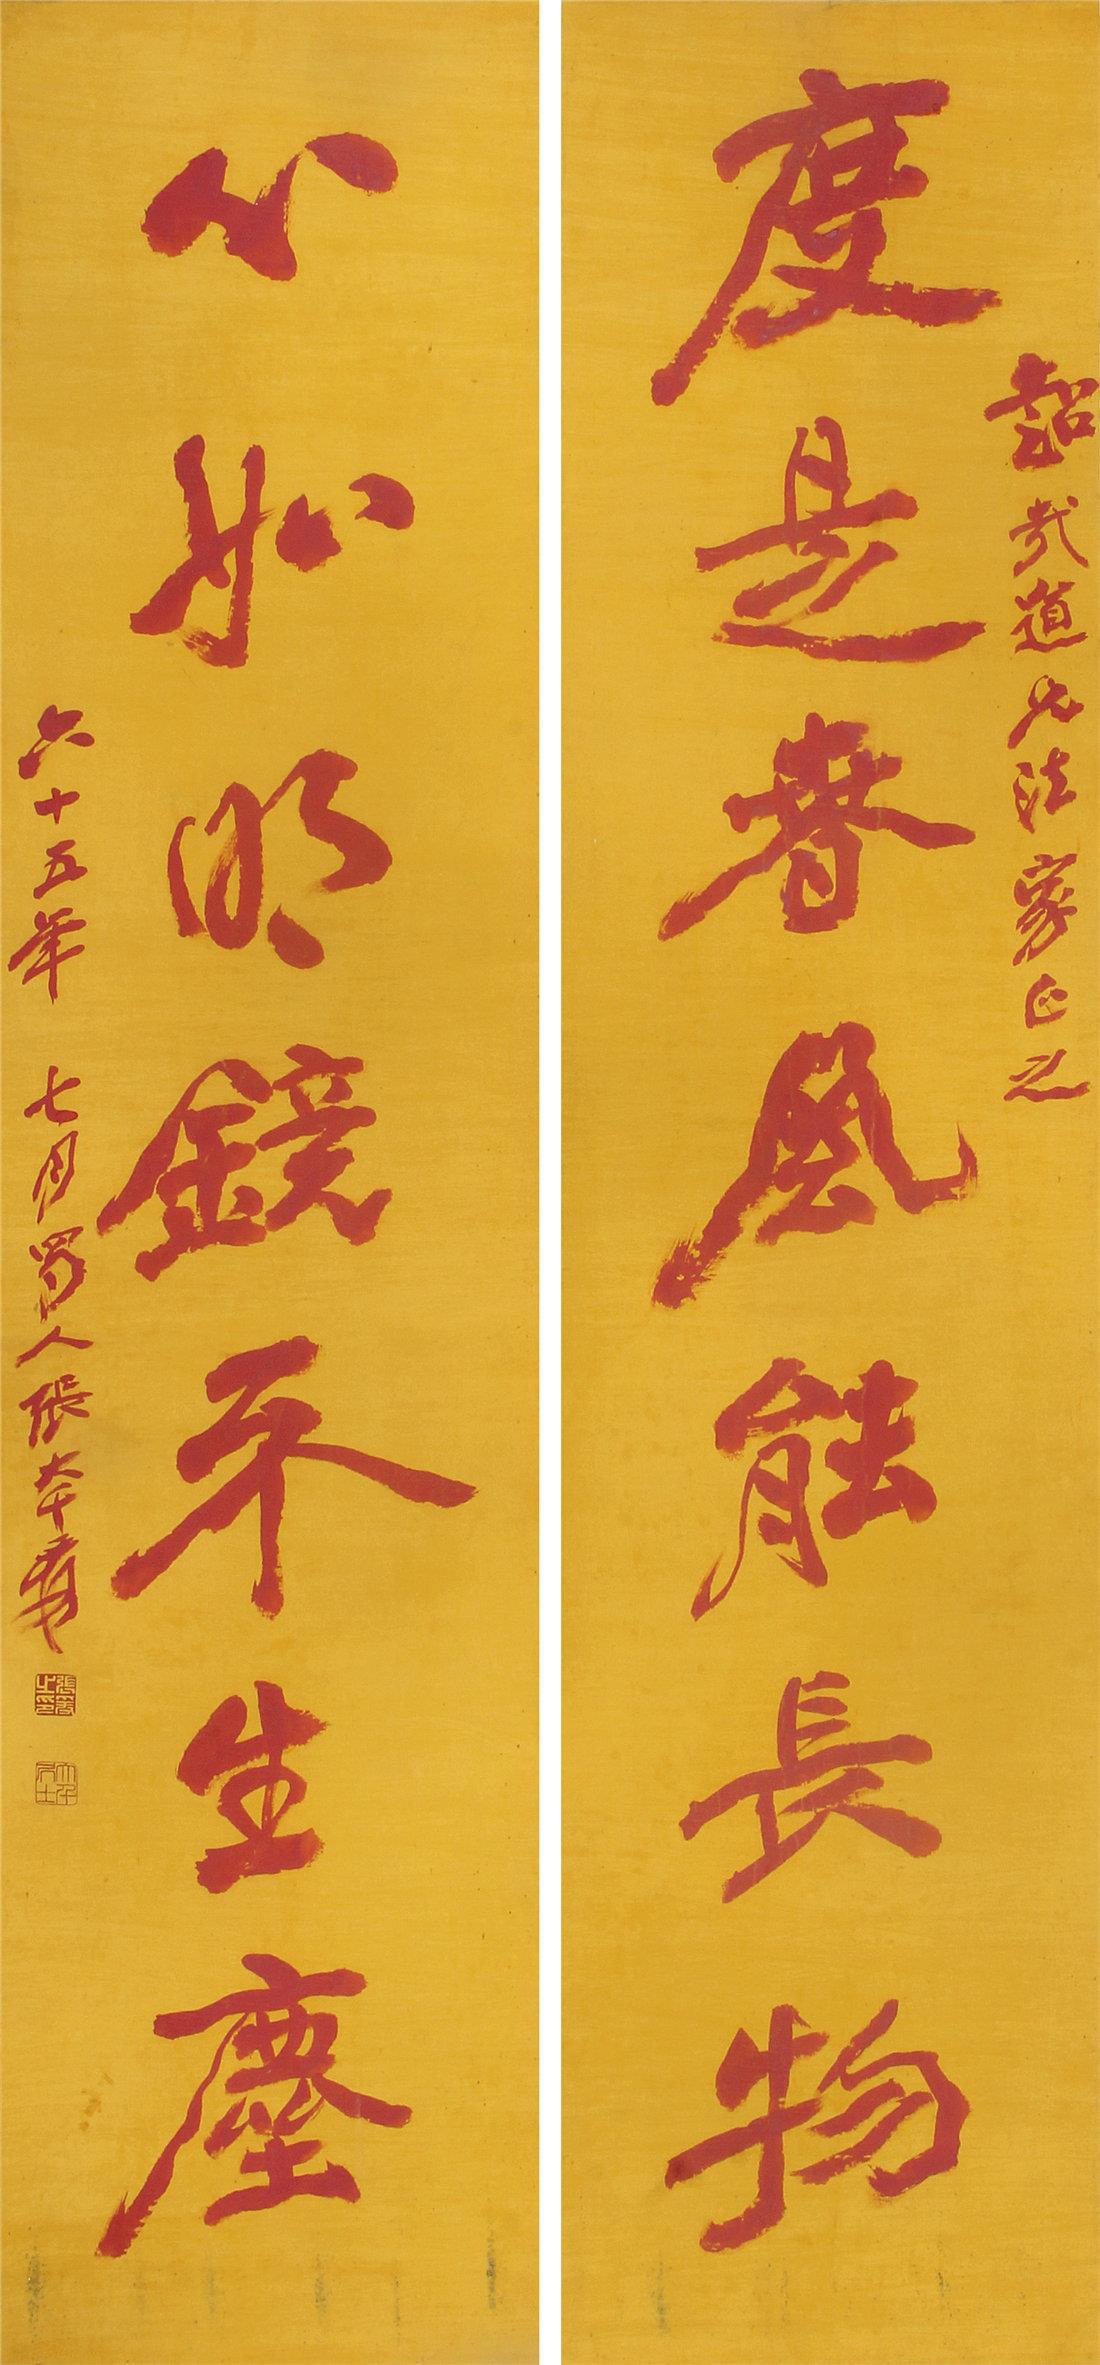 度是春風能長物
道兄法家正之
心如明鏡不生塵
六十五年七月蜀人張大千爰
張爰之印
大千居士